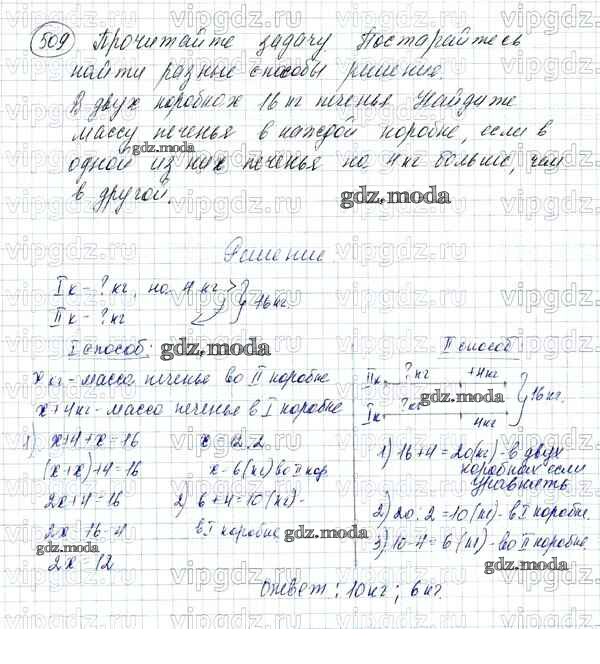 509 Прочитайте задачу Постарайтесь
найти разные способы решение.
В двух коробках 16 кг печенья. Найдите
массу печенья в каждой коробке, если в
одной из них печенья на 4 кг больше, чем
в другой.
gdz.moda
gdz.moda
Решение
I к - ? кг, на 4 кг >
II к - ? кг
} 16 кг.
I способ:
gdz.moda
x кг - масса печенье во II коробке
x+4 кг - масса печенье в I коробке
1) x+4+x=16
(x+x)+4=16
2x+4=16
2x=16-4
2x=12
x=12:2
x=6(кг) во II кор.
2) 6+4=10(кг)-
в I коробке
gdz.moda
gdz.moda
II способ
II к ? кг +4 кг
I к ? кг 4 кг
} 16 кг.
gdz.moda
1) 16+4=20(кг)-в двух
коробках если
уравнять
2) 20:2=10(кг)-в I коробке.
3) 10-4=6(кг)-во II коробке.
gdz.moda
Ответ: 10 кг; 6 кг.
vipgdz.ru